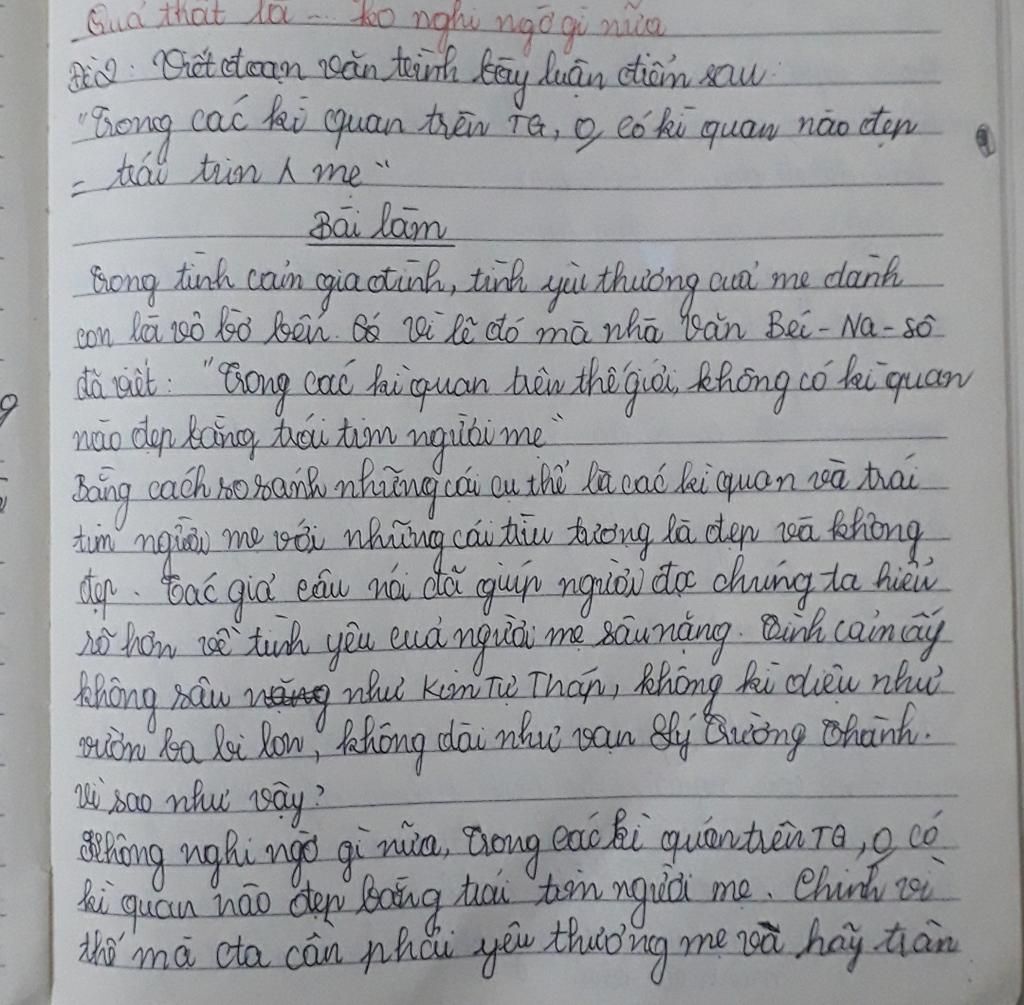 Quả thật là ... ko nghi ngờ gì nữa
Đề 2: Viết đoạn văn trình bày luận điểm sau:
"Trong các kì quan trên TG, o có kì quan nào đẹp
= trái tim λ mẹ"
Bài làm
Trong tình cảm gia đình, tình yêu thương của mẹ dành
con là vô bờ bến. Có vì lẽ đó mà nhà văn Bec-Na-sô
đã viết: "Trong các kì quan trên thế giới, không có kì quan
nào đẹp bằng trái tim người mẹ"
Bằng cách so sánh những cái cụ thể là các kì quan và trái
tim người mẹ với những cái trừu tượng là đẹp và không
đẹp. Tác giả câu nói đã giúp người đọc chúng ta hiểu
rõ hơn về tình yêu của người mẹ sâu nặng. Tình cảm ấy
không sâu nặng như Kim Tự Tháp, không kì diệu như
vườn ba bi lon, không dài như vạn lý Trường Thành.
Vì sao như vậy?
Không nghi ngờ gì nữa, Trong các kì quan trên TG, o có
kì quan nào đẹp bằng trái tim người mẹ. Chính vì
thế mà cta cần phải yêu thương mẹ và hãy trân